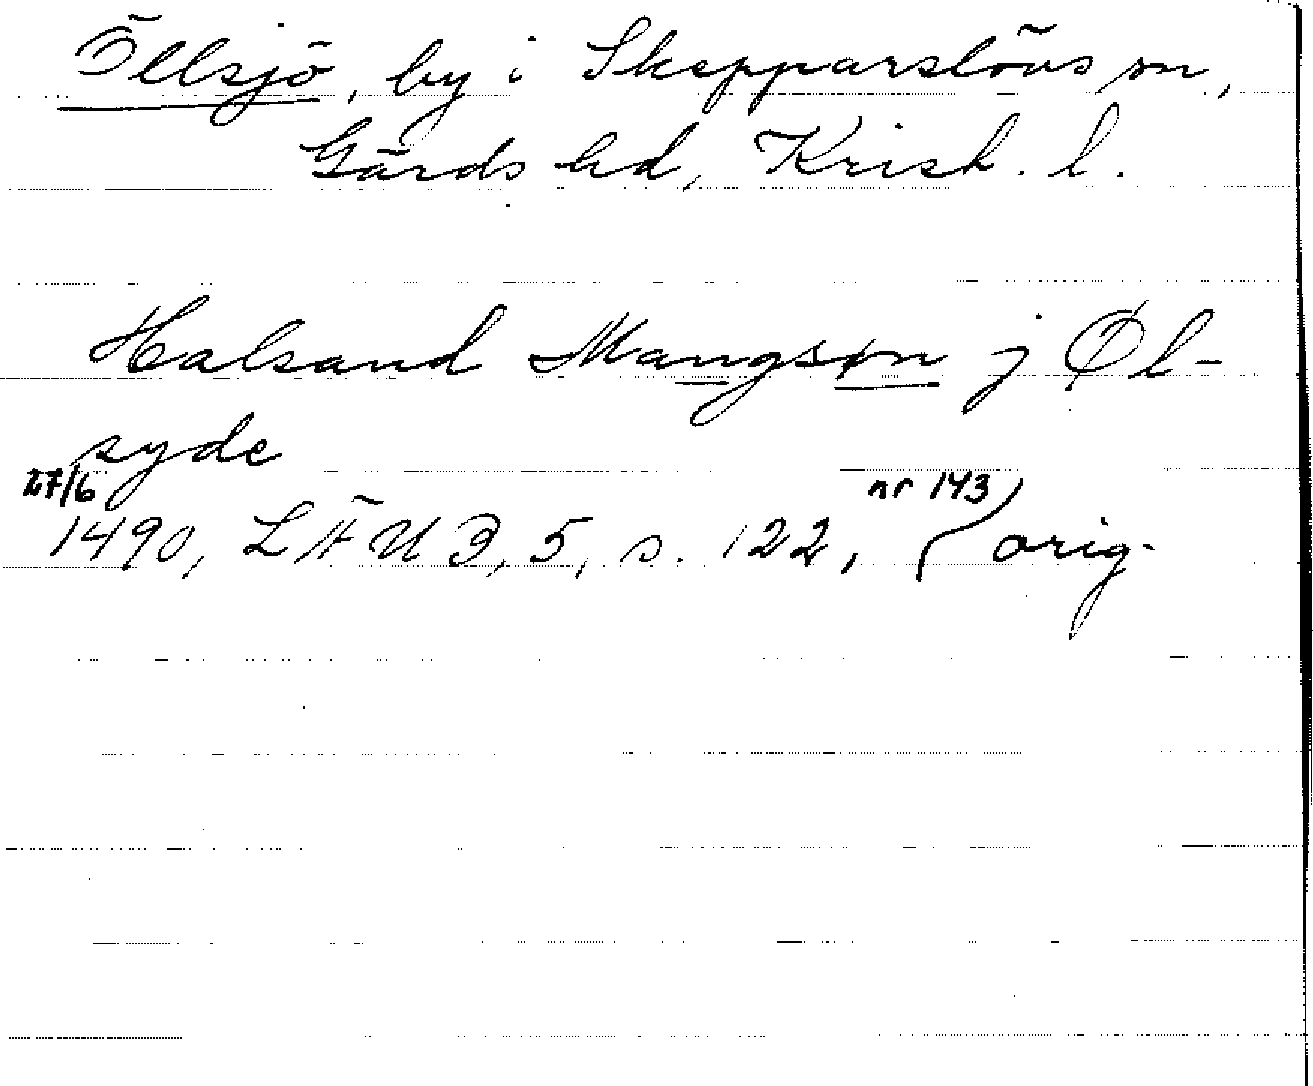 Öllsjö, by i Skepparslövs sn,
Gärds hd, Krist. l.
Halsand Mangsøn j Øl-
syde
27/6
1490, LÄUB, 5, s. 122, nr 143) orig.